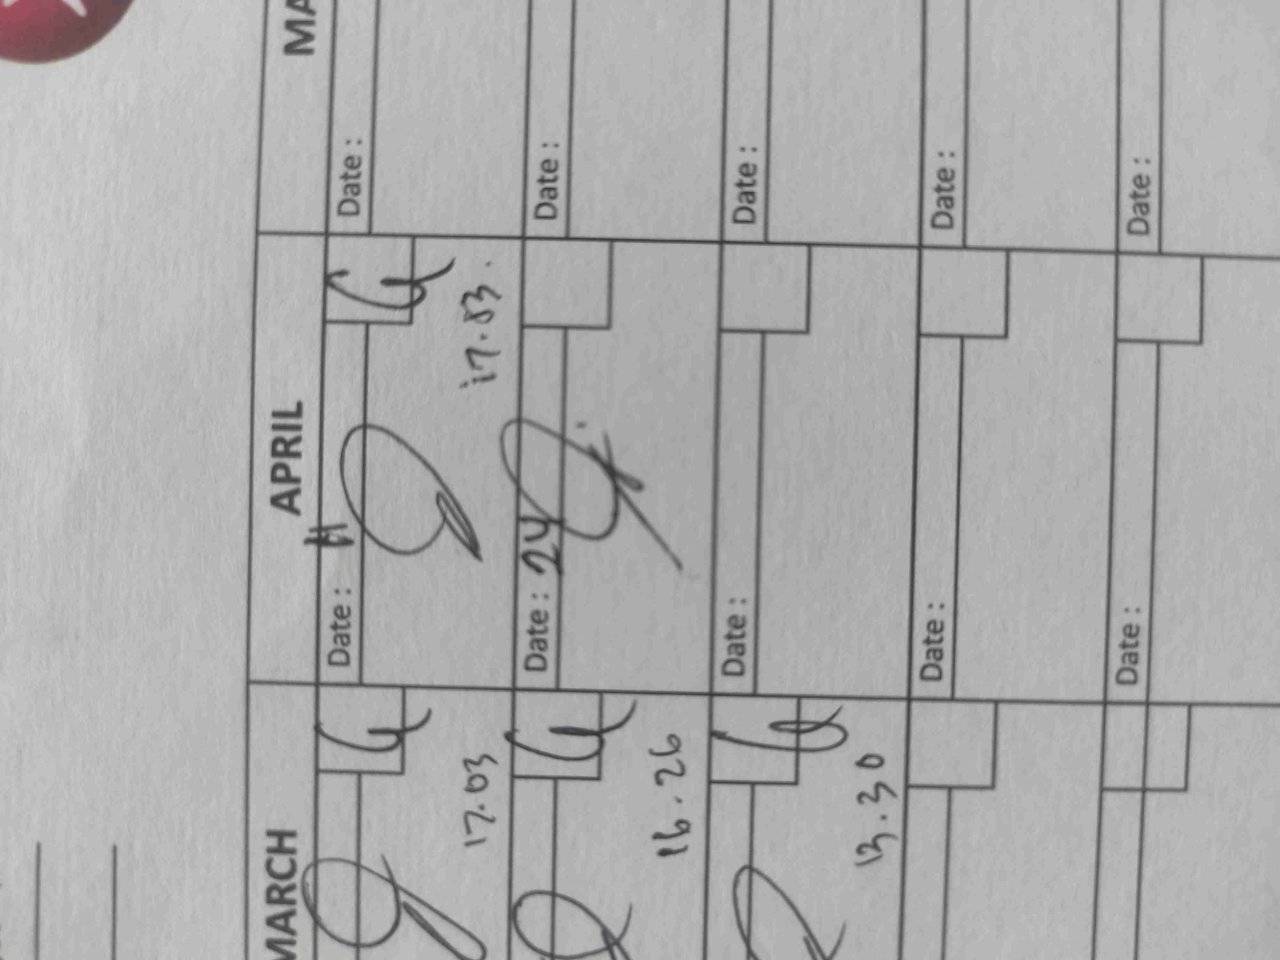 MARCH
17.03
16.26
13.30
APRIL
Date :
17.53.
Date : 24
Date :
Date :
Date :
MA
Date :
Date :
Date :
Date :
Date :